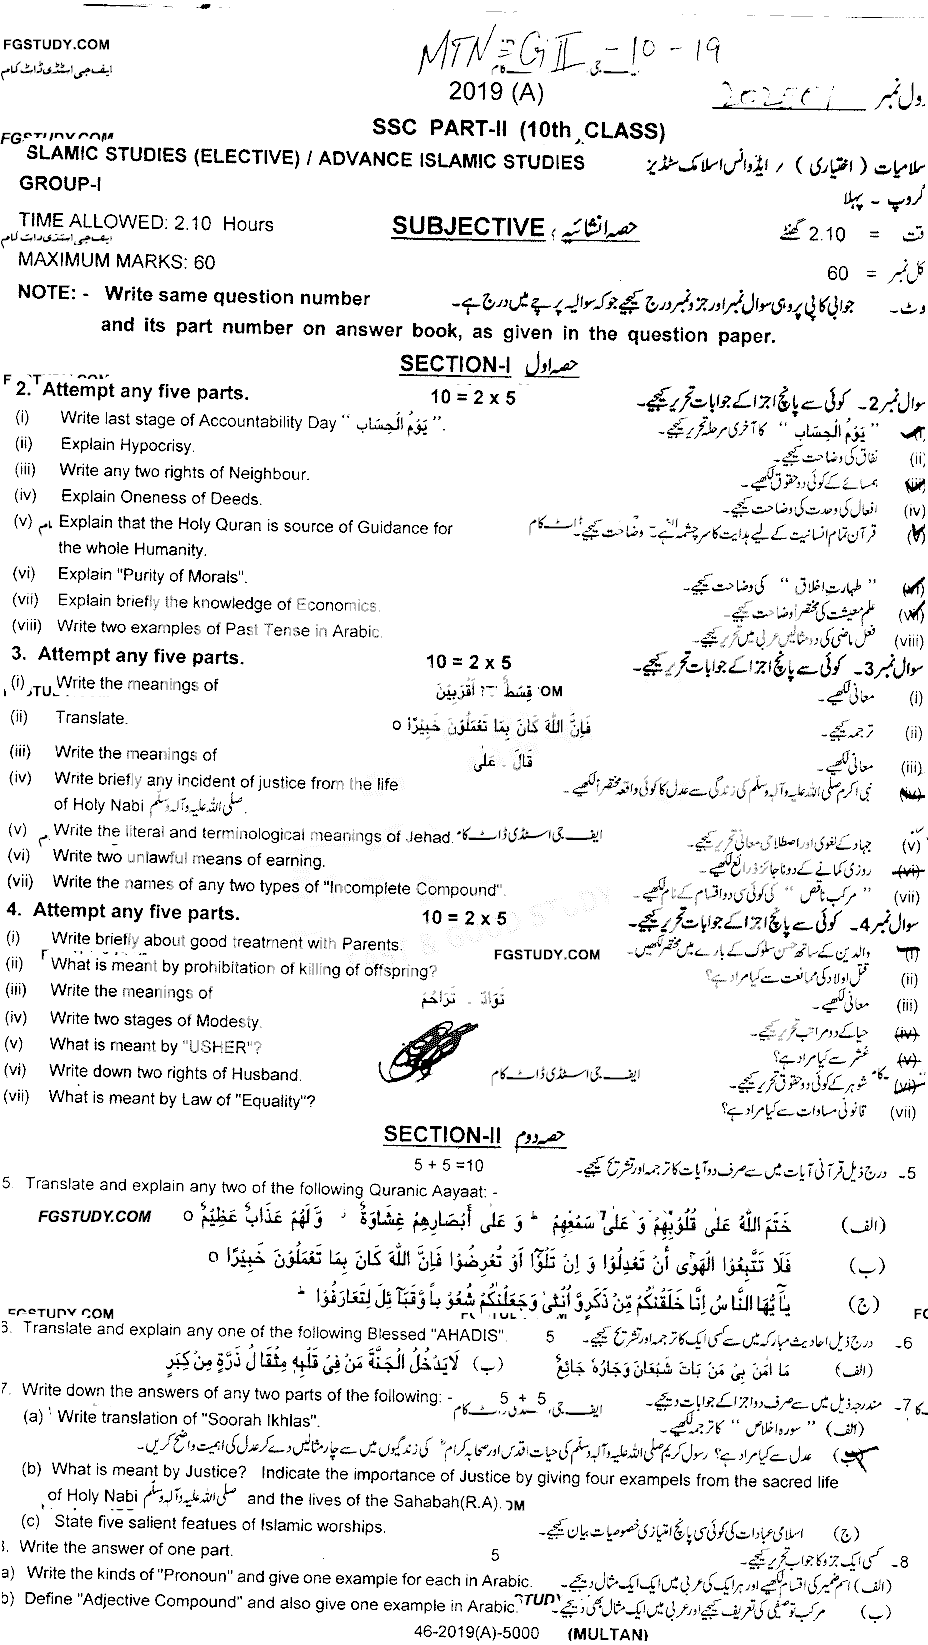 FGSTUDY.COM
ایف جی اسٹڈی ڈاٹ کام
MTN GII -10-19
2019 (A)
رول نمبر
SSC PART-II (10th CLASS)
FGSTUDY.COM
SLAMIC STUDIES (ELECTIVE) / ADVANCE ISLAMIC STUDIES
سلامیات ( اختیاری ) / ایڈوانس اسلامک سٹڈیز
GROUP-I
گروپ - پہلا
TIME ALLOWED: 2.10 Hours
SUBJECTIVE حصہ انشائیہ
قت = 2.10 گھنٹے
ایف جی اسٹڈی ڈاٹ کام
MAXIMUM MARKS: 60
کل نمبر = 60
NOTE: - Write same question number
and its part number on answer book, as given in the question paper.
وٹ - جوابی کاپی پر وہی سوال نمبر اور جز و نمبر درج کیجیے جو کہ سوالیہ پرچے میں درج ہے۔
SECTION-I حصہ اول
2. Attempt any five parts. 10 = 2 x 5
سوال نمبر 2۔ کوئی سے پانچ اجزا کے جوابات تحریر کیجیے۔
(i) Write last stage of Accountability Day " يَوْمُ الْحِسَاب ".
" يَوْمُ الْحِسَاب " کا آخری مرحلہ تحریر کیجیے۔ (i)
(ii) Explain Hypocrisy.
نفاق کی وضاحت کیجیے۔ (ii)
(iii) Write any two rights of Neighbour.
ہمسائے کے کوئی دو حقوق لکھیے۔ (iii)
(iv) Explain Oneness of Deeds.
افعال کی وحدت کی وضاحت کیجیے۔ (iv)
(v) Explain that the Holy Quran is source of Guidance for
the whole Humanity.
قرآن تمام انسانیت کے لیے ہدایت کا سرچشمہ ہے۔ وضاحت کیجیے۔ (v)
(vi) Explain "Purity of Morals".
" طہارتِ اخلاق " کی وضاحت کیجیے۔ (vi)
(vii) Explain briefly the knowledge of Economics.
علم معیشت کی مختصراً وضاحت کیجیے۔ (vii)
(viii) Write two examples of Past Tense in Arabic.
فعل ماضی کی دو مثالیں عربی میں تحریر کیجیے۔ (viii)
3. Attempt any five parts. 10 = 2 x 5
سوال نمبر 3۔ کوئی سے پانچ اجزا کے جوابات تحریر کیجیے۔
(i) Write the meanings of قِسْطٌ - اَقْرَبِيْنَ
معانی لکھیے۔ (i)
(ii) Translate. فَاِنَّ اللّٰهَ كَانَ بِمَا تَعْمَلُوْنَ خَبِيْرًا ○
ترجمہ کیجیے۔ (ii)
(iii) Write the meanings of قَالَ - عَلٰى
معانی لکھیے۔ (iii)
(iv) Write briefly any incident of justice from the life
of Holy Nabi صلی اللہ علیہ وآلہ وسلم.
نبی اکرم صلی اللہ علیہ وآلہ وسلم کی زندگی سے عدل کا کوئی واقعہ مختصراً لکھیے۔ (iv)
(v) Write the literal and terminological meanings of Jehad.
ایف جی اسٹڈی ڈاٹ کام
جہاد کے لغوی اور اصطلاحی معانی تحریر کیجیے۔ (v)
(vi) Write two unlawful means of earning.
روزی کمانے کے دو ناجائز ذرائع لکھیے۔ (vi)
(vii) Write the names of any two types of "Incomplete Compound".
" مرکب ناقص " کی کوئی سی دو اقسام کے نام لکھیے۔ (vii)
4. Attempt any five parts. 10 = 2 x 5
سوال نمبر 4۔ کوئی سے پانچ اجزا کے جوابات تحریر کیجیے۔
(i) Write briefly about good treatment with Parents.
FGSTUDY.COM
والدین کے ساتھ حسن سلوک کے بارے میں مختصراً لکھیں۔ (i)
(ii) What is meant by prohibitation of killing of offspring?
قتل اولاد کی ممانعت سے کیا مراد ہے؟ (ii)
(iii) Write the meanings of تَوَادّ - تَرَاحُمْ
معانی لکھیے۔ (iii)
(iv) Write two stages of Modesty.
حیا کے دو مراتب تحریر کیجیے۔ (iv)
(v) What is meant by "USHER"?
عشر سے کیا مراد ہے؟ (v)
(vi) Write down two rights of Husband.
ایف جی اسٹڈی ڈاٹ کام
شوہر کے کوئی دو حقوق تحریر کیجیے۔ (vi)
(vii) What is meant by Law of "Equality"?
قانونی مساوات سے کیا مراد ہے؟ (vii)
SECTION-II حصہ دوم
5 + 5 =10
5۔ درج ذیل قرآنی آیات میں سے صرف دو آیات کا ترجمہ اور تشریح کیجیے۔
5. Translate and explain any two of the following Quranic Aayaat: -
FGSTUDY.COM
(الف) خَتَمَ اللّٰهُ عَلٰى قُلُوْبِهِمْ وَ عَلٰى سَمْعِهِمْ ؕ وَ عَلٰى اَبْصَارِهِمْ غِشَاوَةٌ ۫ وَّ لَهُمْ عَذَابٌ عَظِيْمٌ ○
(ب) فَلَا تَتَّبِعُوا الْهَوٰٓى اَنْ تَعْدِلُوْا وَ اِنْ تَلْوٗٓا اَوْ تُعْرِضُوْا فَاِنَّ اللّٰهَ كَانَ بِمَا تَعْمَلُوْنَ خَبِيْرًا ○
(ج) يٰٓاَيُّهَا النَّاسُ اِنَّا خَلَقْنٰكُمْ مِّنْ ذَكَرٍ وَّ اُنْثٰى وَجَعَلْنٰكُمْ شُعُوْبًا وَّقَبَآئِلَ لِتَعَارَفُوْا ؕ
FGSTUDY.COM
6. Translate and explain any one of the following Blessed "AHADIS". 5
6۔ درج ذیل احادیث مبارکہ میں سے کسی ایک کا ترجمہ اور تشریح کیجیے۔
(الف) مَا اٰمَنَ بِىْ مَنْ بَاتَ شَبْعَانَ وَجَارُهٗ جَائِعٌ (ب) لَا يَدْخُلُ الْجَنَّةَ مَنْ فِىْ قَلْبِهٖ مِثْقَالُ ذَرَّةٍ مِنْ كِبَرٍ
7. Write down the answers of any two parts of the following: - 5 + 5
ایف جی اسٹڈی ڈاٹ کام
7۔ مندرجہ ذیل میں سے صرف دو اجزا کے جوابات دیجیے۔
(a) Write translation of "Soorah Ikhlas".
(الف) " سورہ اخلاص " کا ترجمہ لکھیے۔
(ب) عدل سے کیا مراد ہے؟ رسول کریم صلی اللہ علیہ وآلہ وسلم کی حیات اقدس اور صحابہ کرامؓ کی زندگیوں میں سے چار مثالیں دے کر عدل کی اہمیت واضح کریں۔
(b) What is meant by Justice? Indicate the importance of Justice by giving four exampels from the sacred life
of Holy Nabi صلی اللہ علیہ وآلہ وسلم and the lives of the Sahabah(R.A).
(c) State five salient featues of Islamic worships.
(ج) اسلامی عبادات کی کوئی سی پانچ امتیازی خصوصیات بیان کیجیے۔
8. Write the answer of one part. 5
8۔ کسی ایک جزو کا جواب تحریر کیجیے۔
a) Write the kinds of "Pronoun" and give one example for each in Arabic.
(الف) اسم ضمیر کی اقسام لکھیے اور ہر ایک کی عربی میں ایک ایک مثال دیجیے۔
b) Define "Adjective Compound" and also give one example in Arabic.
(ب) مرکب توصیفی کی تعریف کیجیے اور عربی میں ایک مثال بھی دیجیے۔
46-2019(A)-5000 (MULTAN)